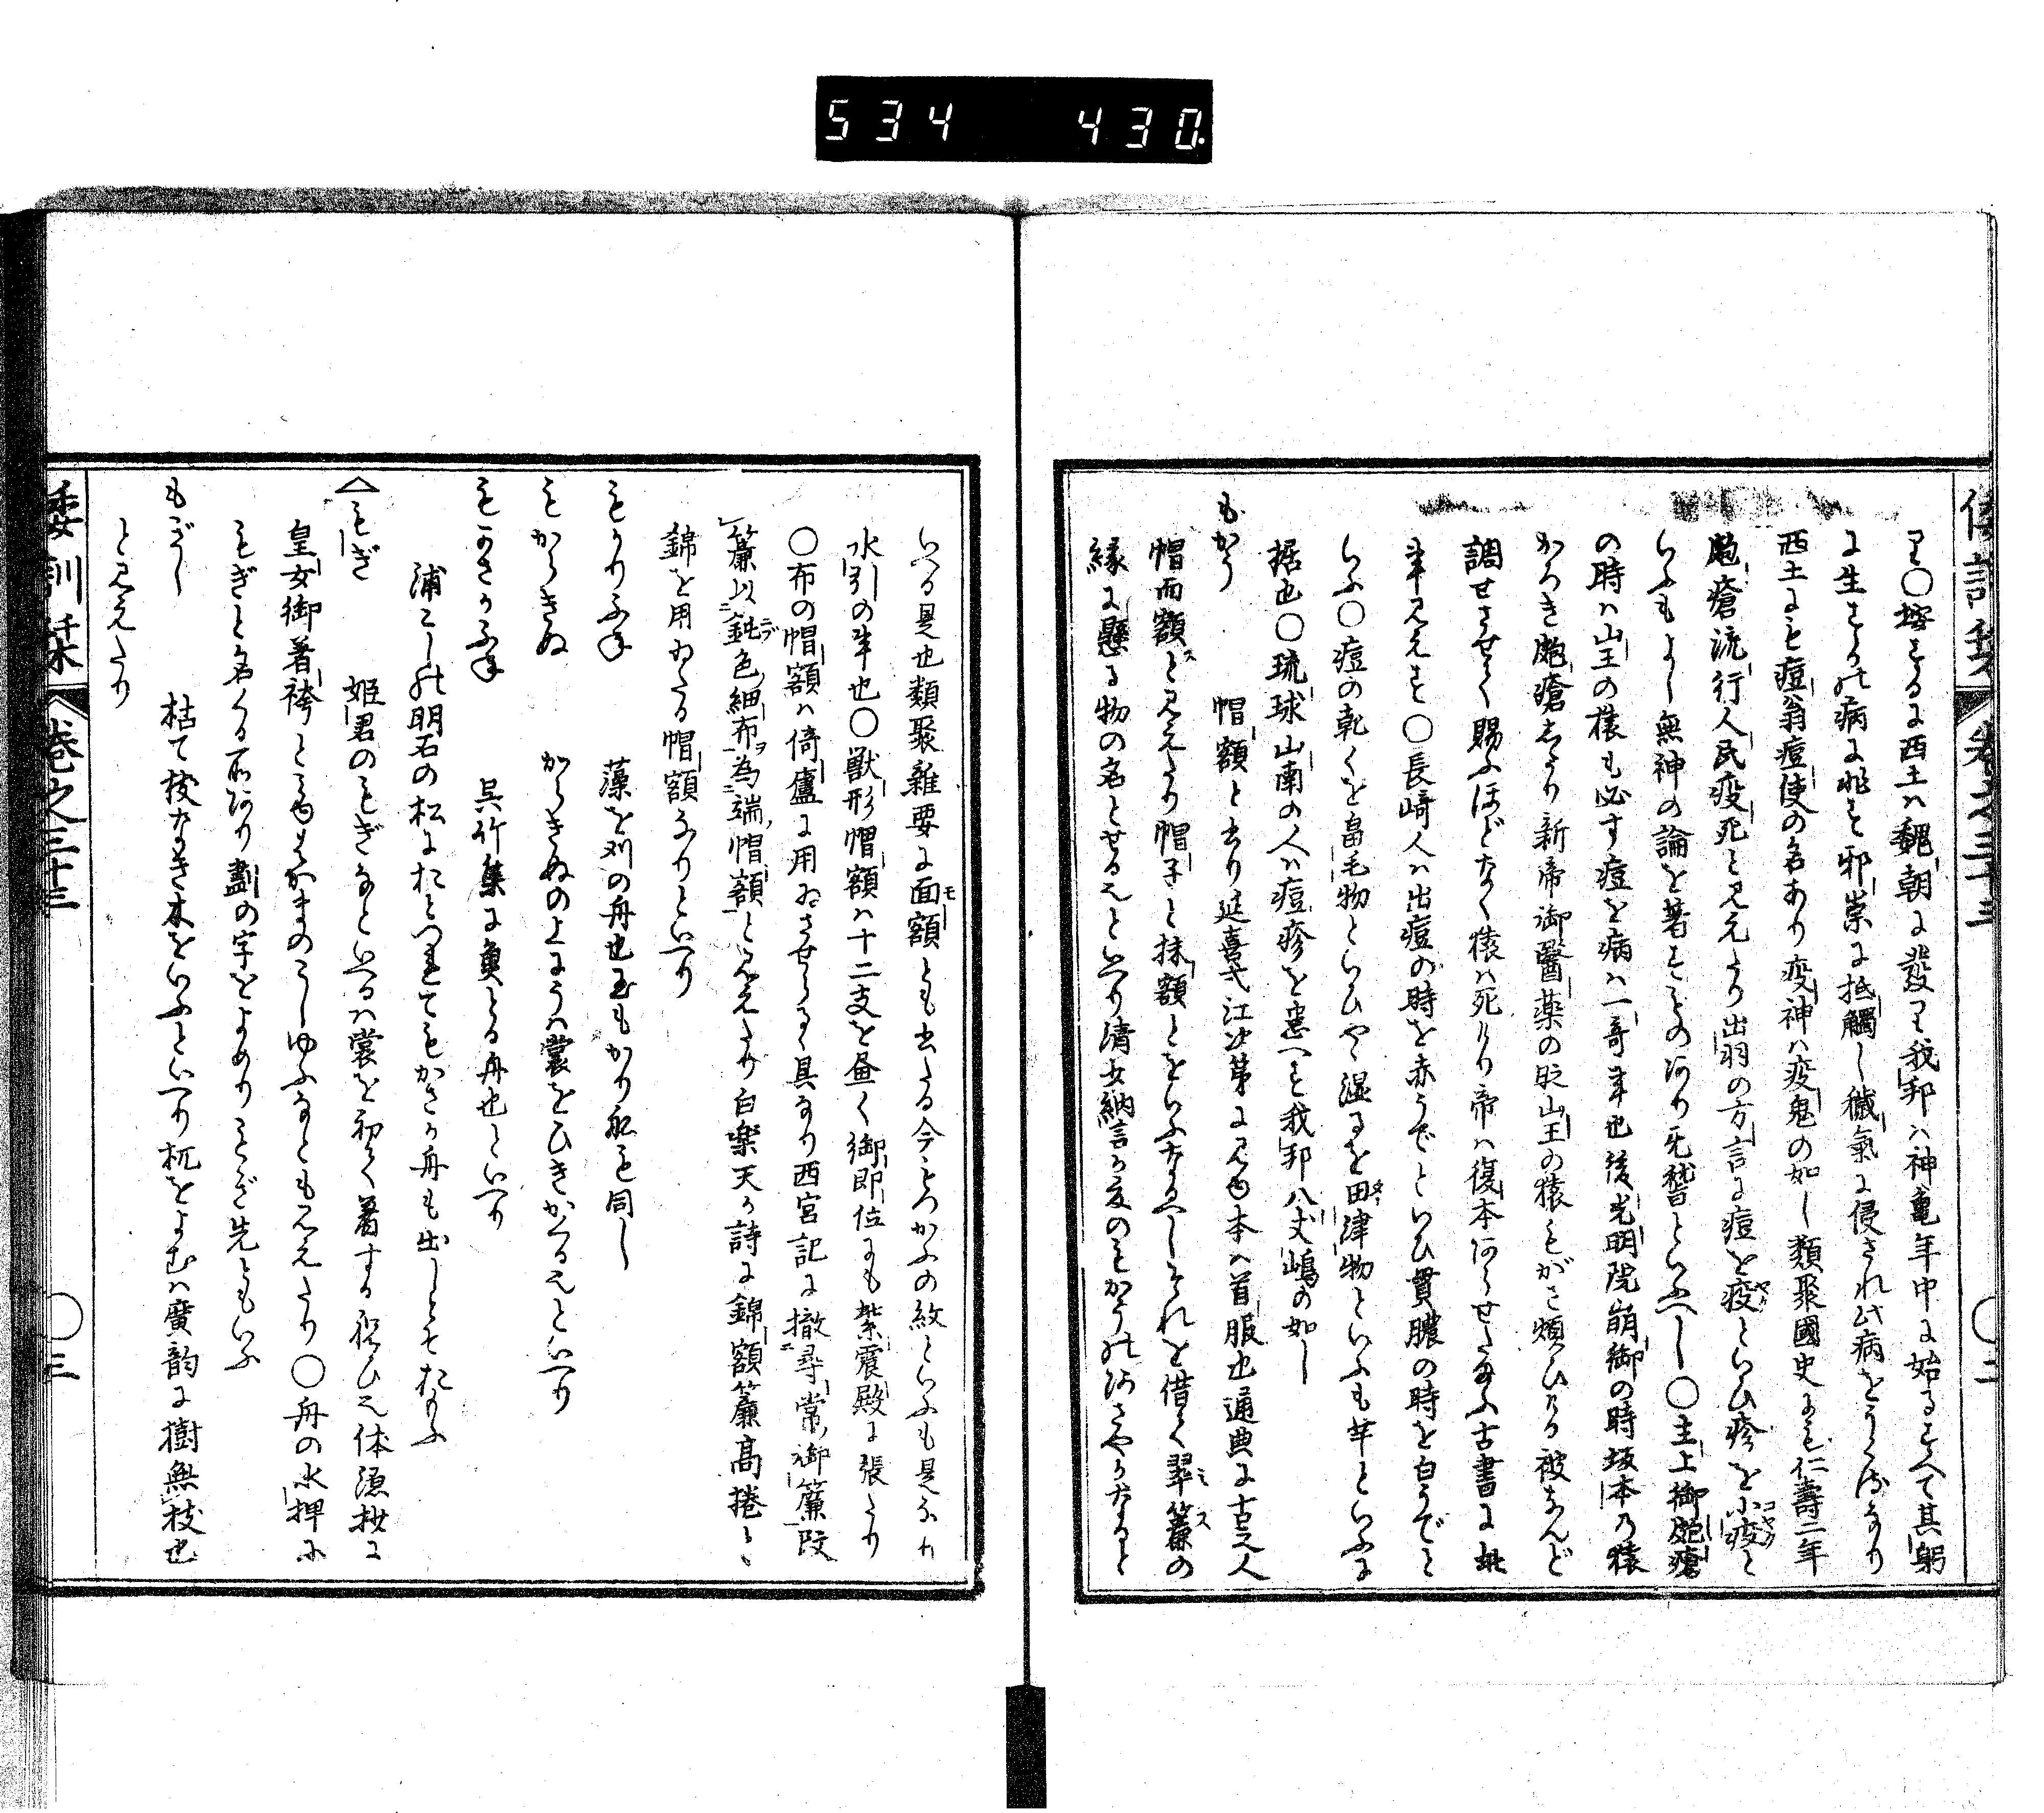 534 430
倭訓栞 巻之三十三 〇二
り〇按するに西土ハ魏朝に發り我邦ハ神亀年中に始るすへて其躬
に生するの病に非す邪祟に抵觸し穢氣に侵され此病をうくるなり
西土にも痘翁痘使の名あり疫神ハ疫鬼の如し類聚國史にも仁壽二年
皰瘡流行人民疫死と見えたり出羽の方言に痘を疫といひ疹を小疫と
いふもよし無神の論を著すものあり兎聟といふへし〇主上御皰瘡
の時ハ山王の猿も必す痘を病ハ一奇事也後光明院崩御の時坂本乃猿
かろき皰瘡志たり新帝御醫薬の時山王の猿もがさ煩ひたる被なんど
調せさせて賜ふほどなく猿ハ死けり帝ハ復本ありせたまふ古書に此
事見えす〇長崎人ハ出痘の時を赤うでといひ貫膿の時を白うでと
いふ〇痘の乾くを畠毛物といひやゝ湿るを田津物といふも竿といふに
据也〇琉球山南の人ハ痘疹を患へす我邦八丈嶋の如し
もかう 帽額と書り延喜式江次第に見ゆ本ハ首服也通典に古之人
帽而額ス と見えたり帽子と抹額とをいふなるへしそれを借て翠簾の
縁に懸る物の名とせる也といへり清女納言か文のもかうのあさやかなると
いへる是也類聚雜要に面額とも書る今もつかふの紋といふも是なり
水引の事也〇獣形帽額ハ十二支を畫く御即位にも紫震殿に張たり
〇布の帽額ハ倚廬に用ゐさせらるゝ具なり西宮記に撤尋常御簾改
簾以鈍色細布為端帽額と見えたり白楽天か詩に錦額簾高捲と
錦を用ゐたる帽額なりといへり
もかりふね 藻を刈の舟也玉もかり舩も同し
もからきぬ からきぬの上にうハ裳をひきかくる也といへり
もかさかふね 呉竹集に魚とる舟也といへり
浦こしの明石の松におとつれてもかさか舟も出しとそおもふ
もぎ 姫君のもぎなといへるハ裳を初て着する祝ひ也体源抄に
皇女御著袴と見ゆはかまのこしゆふなとも見えたり〇舟の水押に
もぎと名くる所あり劃の字をよめりもぎ先ともいふ
もぎし 枯て枝なき木をいふといへり杌をよむハ廣韵に樹無枝也
と見えたり
倭訓栞 巻之三十三 〇三